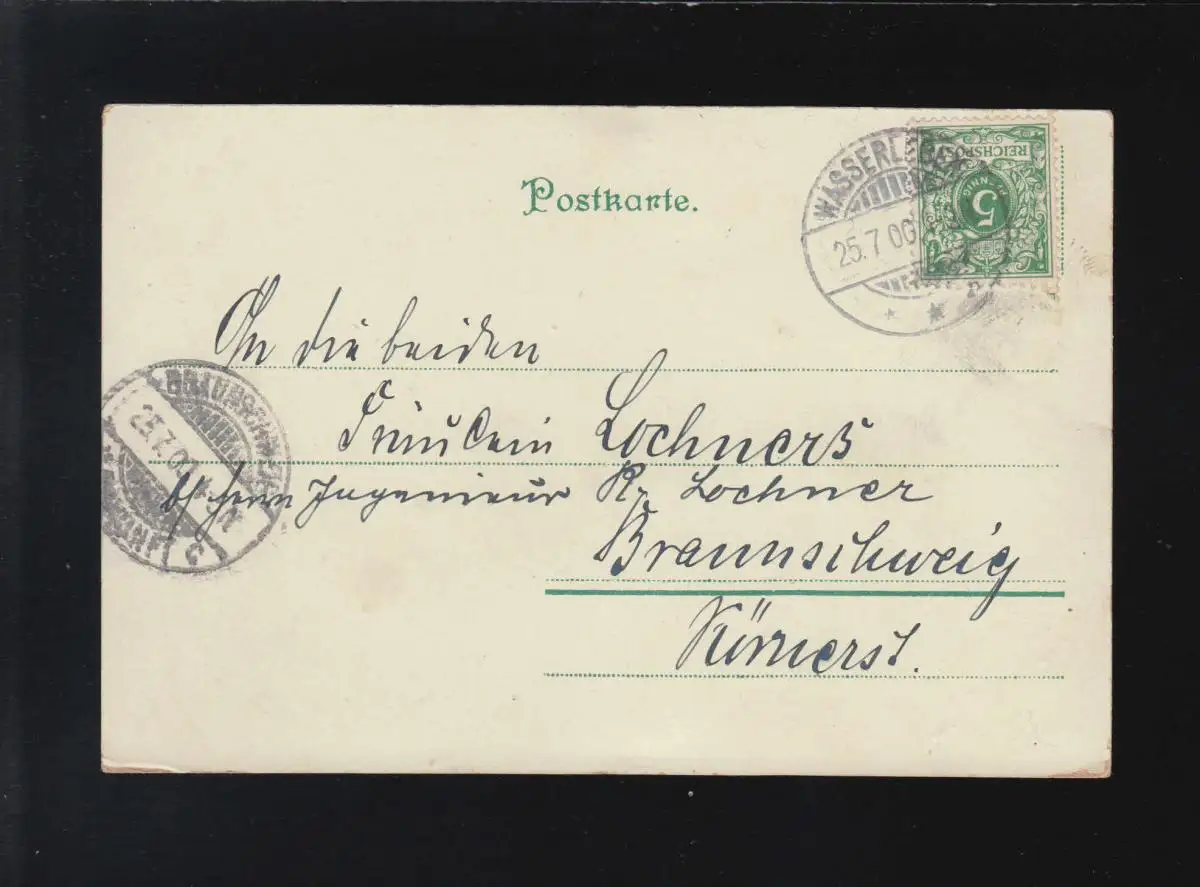 Postkarte.
REICHSPOST
5
PFENNIG
25.7.00
An die beiden
Fräulein Lochners
b/ Herrn Ingenieur R. Lochner
Braunschweig
Körnerst.
BRAUNSCHWEIG
25.7.00
c